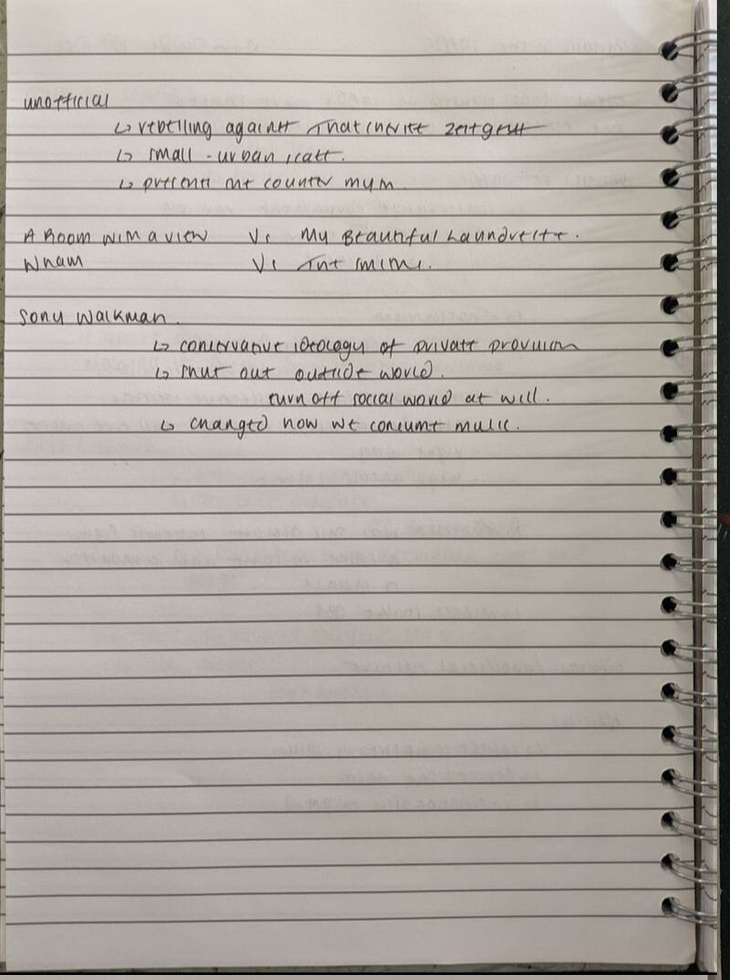 unofficial
↳ rebelling against Thatcherite zeitgeist
↳ small-urban scale.
↳ presents the counter myth.
A Room with a view Vs My Beautiful Laundrette.
Wham Vs The Smiths.
Sony Walkman.
↳ conservative ideology of private provision
↳ shut out outside world.
turn off social world at will.
↳ changed how we consume music.